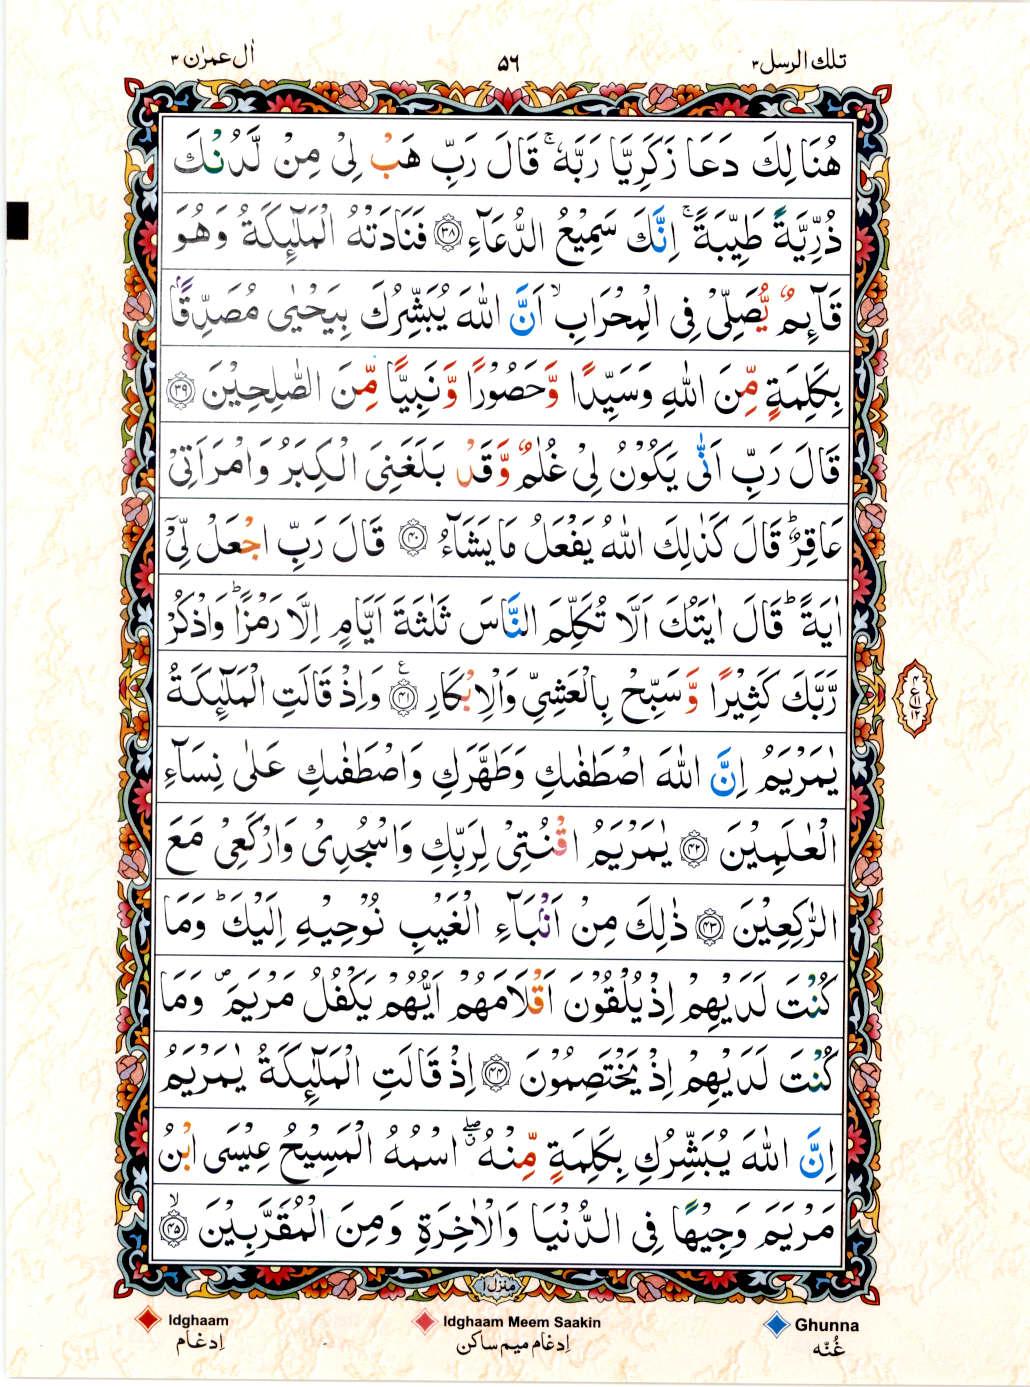 اٰل عمرٰن ٣
٥٦
تلك الرسل ٣
هُنَالِكَ دَعَا زَكَرِيَّا رَبَّهٗ ۚ قَالَ رَبِّ هَبْ لِیْ مِنْ لَّدُنْكَ
ذُرِّيَّةً طَيِّبَةً ۚ اِنَّكَ سَمِيْعُ الدُّعَآءِ ﴿٣٨﴾ فَنَادَتْهُ الْمَلٰٓئِكَةُ وَهُوَ
قَآئِمٌ يُّصَلِّیْ فِی الْمِحْرَابِ ۙ اَنَّ اللّٰهَ يُبَشِّرُكَ بِيَحْيٰی مُصَدِّقًۢا
بِكَلِمَةٍ مِّنَ اللّٰهِ وَسَيِّدًا وَّحَصُوْرًا وَّنَبِيًّا مِّنَ الصّٰلِحِيْنَ ﴿٣٩﴾
قَالَ رَبِّ اَنّٰی يَكُوْنُ لِیْ غُلٰمٌ وَّقَدْ بَلَغَنِیَ الْكِبَرُ وَامْرَاَتِیْ
عَاقِرٌ ؕ قَالَ كَذٰلِكَ اللّٰهُ يَفْعَلُ مَا يَشَآءُ ﴿٤٠﴾ قَالَ رَبِّ اجْعَلْ لِّیْۤ
اٰيَةً ؕ قَالَ اٰيَتُكَ اَلَّا تُكَلِّمَ النَّاسَ ثَلٰثَةَ اَيَّامٍ اِلَّا رَمْزًا ؕ وَاذْكُرْ
رَّبَّكَ كَثِيْرًا وَّسَبِّحْ بِالْعَشِیِّ وَالْاِبْكَارِ ﴿٤١﴾ ع وَاِذْ قَالَتِ الْمَلٰٓئِكَةُ
يٰمَرْيَمُ اِنَّ اللّٰهَ اصْطَفٰىكِ وَطَهَّرَكِ وَاصْطَفٰىكِ عَلٰی نِسَآءِ
الْعٰلَمِيْنَ ﴿٤٢﴾ يٰمَرْيَمُ اقْنُتِیْ لِرَبِّكِ وَاسْجُدِیْ وَارْكَعِیْ مَعَ
الرّٰكِعِيْنَ ﴿٤٣﴾ ذٰلِكَ مِنْ اَنْۢبَآءِ الْغَيْبِ نُوْحِيْهِ اِلَيْكَ ؕ وَمَا
كُنْتَ لَدَيْهِمْ اِذْ يُلْقُوْنَ اَقْلَامَهُمْ اَيُّهُمْ يَكْفُلُ مَرْيَمَ ۪ وَمَا
كُنْتَ لَدَيْهِمْ اِذْ يَخْتَصِمُوْنَ ﴿٤٤﴾ اِذْ قَالَتِ الْمَلٰٓئِكَةُ يٰمَرْيَمُ
اِنَّ اللّٰهَ يُبَشِّرُكِ بِكَلِمَةٍ مِّنْهُ ۖ اسْمُهُ الْمَسِيْحُ عِيْسَی ابْنُ
مَرْيَمَ وَجِيْهًا فِی الدُّنْيَا وَالْاٰخِرَةِ وَمِنَ الْمُقَرَّبِيْنَ ۙ ﴿٤٥﴾
٤
ع ١١
١٢
منزل ١
Idghaam
اِدغام
Idghaam Meem Saakin
اِدغام میم ساکن
Ghunna
غُنّہ